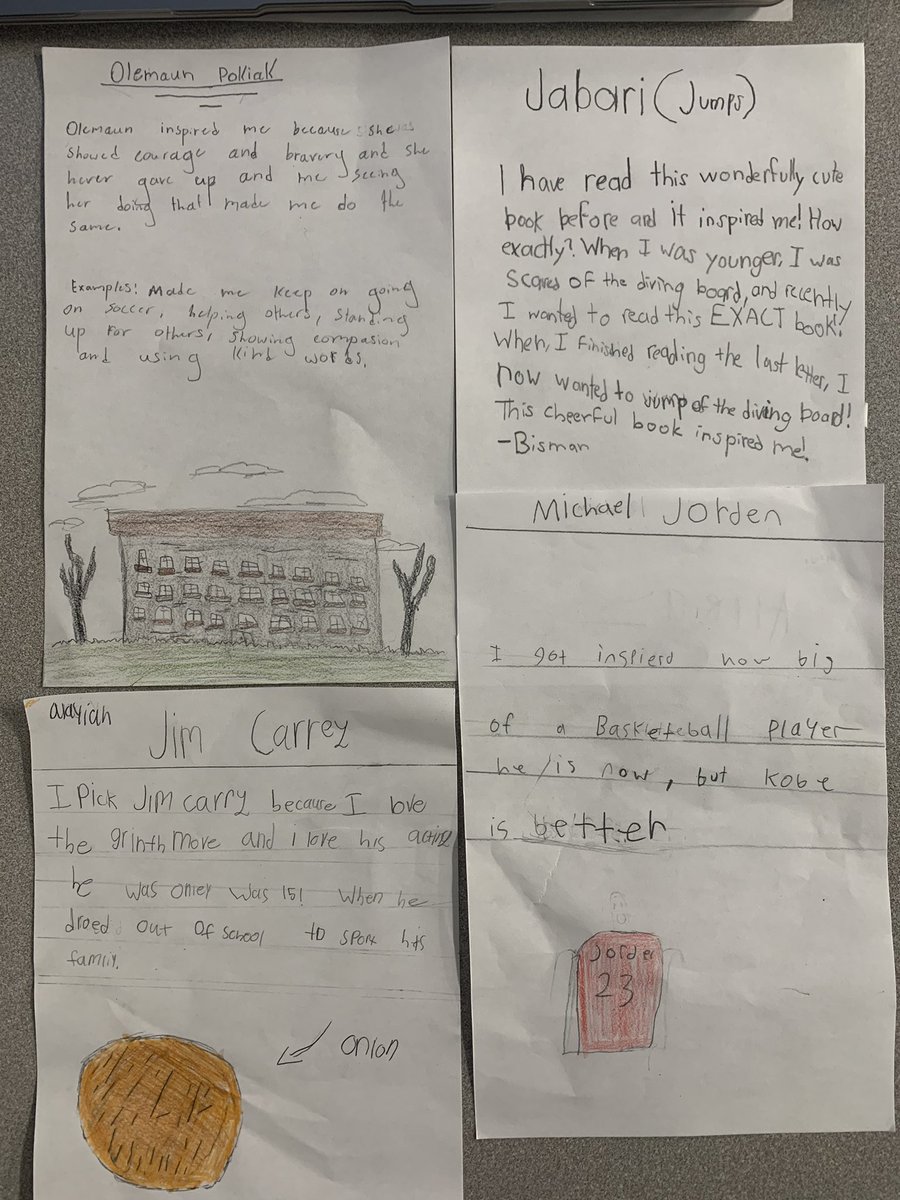 Olemaun Pokiak
Olemaun inspired me because she
showed courage and bravery and she
never gave up and me seeing
her doing that made me do the
same.
Examples: Made me keep on going
on soccer, helping others, standing
up for others, showing compasion
and using kind words.
Jabari (Jumps)
I have read this wonderfully cute
book before and it inspired me! How
exactly? When I was younger, I was
scared of the diving board, and recently
I wanted to read this EXACT book!
When, I finished reading the last letter, I
now wanted to jump of the diving board!
This cheerful book inspired me!
-Bisman
Michael Jorden
I got inspierd how big
of a Basketeball player
he is now, but kobe
is better
Jorden
23
Jim Carrey
I Pick Jim carry because I love
the grinth move and i love his acting
he was onley was 15! When he
droed out of school to sport his
family.
onion